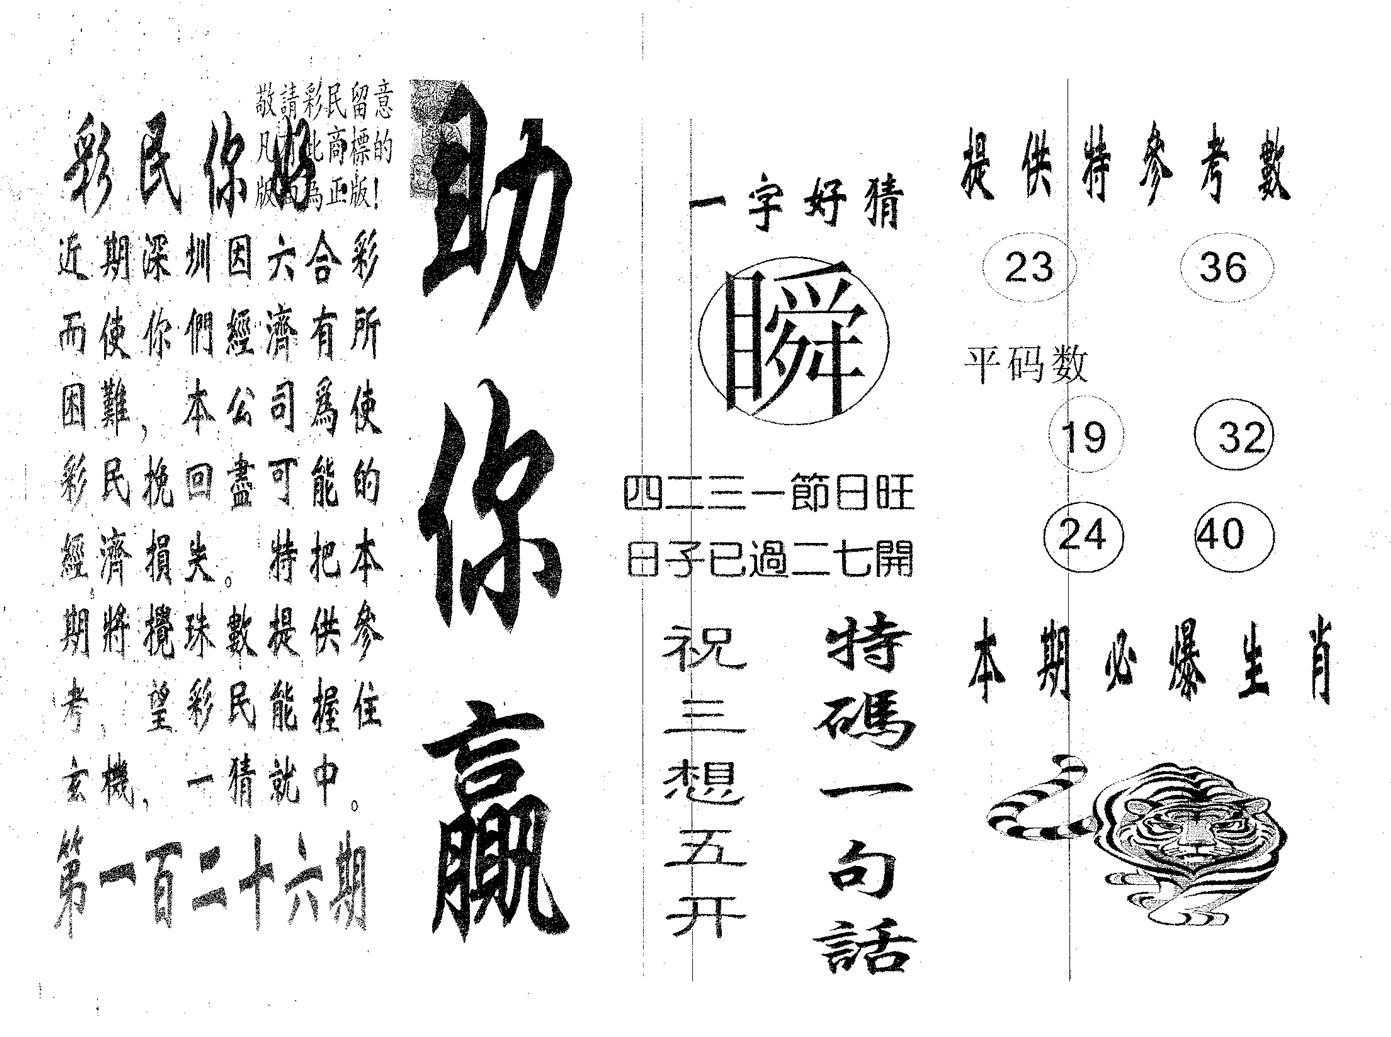 敬請彩民留意
凡 此商標的
版 為正版!
彩民你好
近期深圳因六合彩
而使你們經濟有所
困難，本公司為使
彩民挽回盡可能的
經濟損失。特把本
期將攪珠數提供參
考，望彩民能握住
玄機，一猜就中。
第一百二十六期
助你贏
一字好猜
瞬
四二三一節日旺
日子已過二七開
特碼一句話
祝三想五开
提供特參考數
23 36
平码数
19 32
24 40
本期必爆生肖